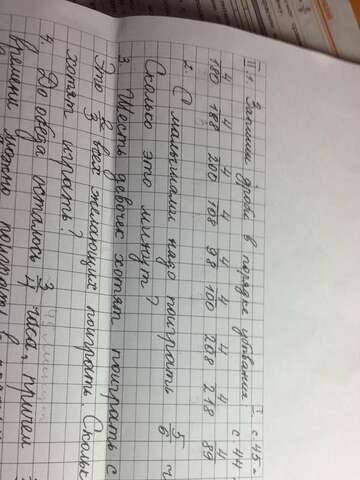 II. 1. Запиши дроби в порядке убывания I с 45 -
с 44
4/180 4/188 4/200 4/108 4/98 4/100 4/208 4/218 4/89
2. С малышами надо поиграть 5/6 ч
Сколько это минут?
3. Шесть девочек хотят поиграть с
Это 2/3 всех желающих поиграть. Скольк
хотят играть?
4. До обеда осталось 3/4 часа, причем
времени можно поиграть в